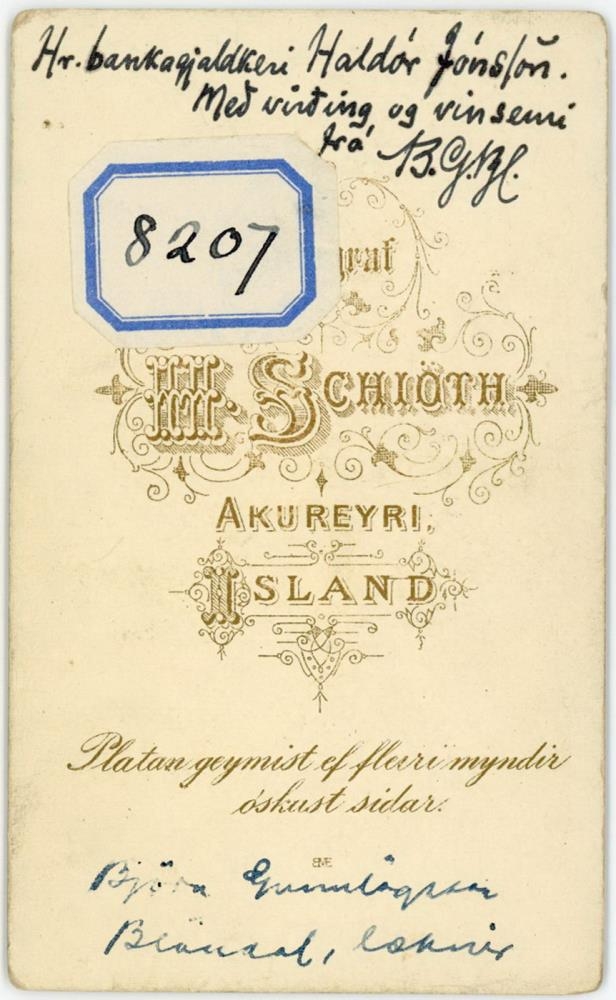 Hr. bankagjaldkeri Haldór Jónsson.
Með virðing og vinsemi
frá B.G.Bl.
8207
graf
H. SCHIÖTH
AKUREYRI,
ISLAND
Platan geymist ef fleiri myndir
óskast sidar.
Björn Gunnlögsson
Blöndal, læknir